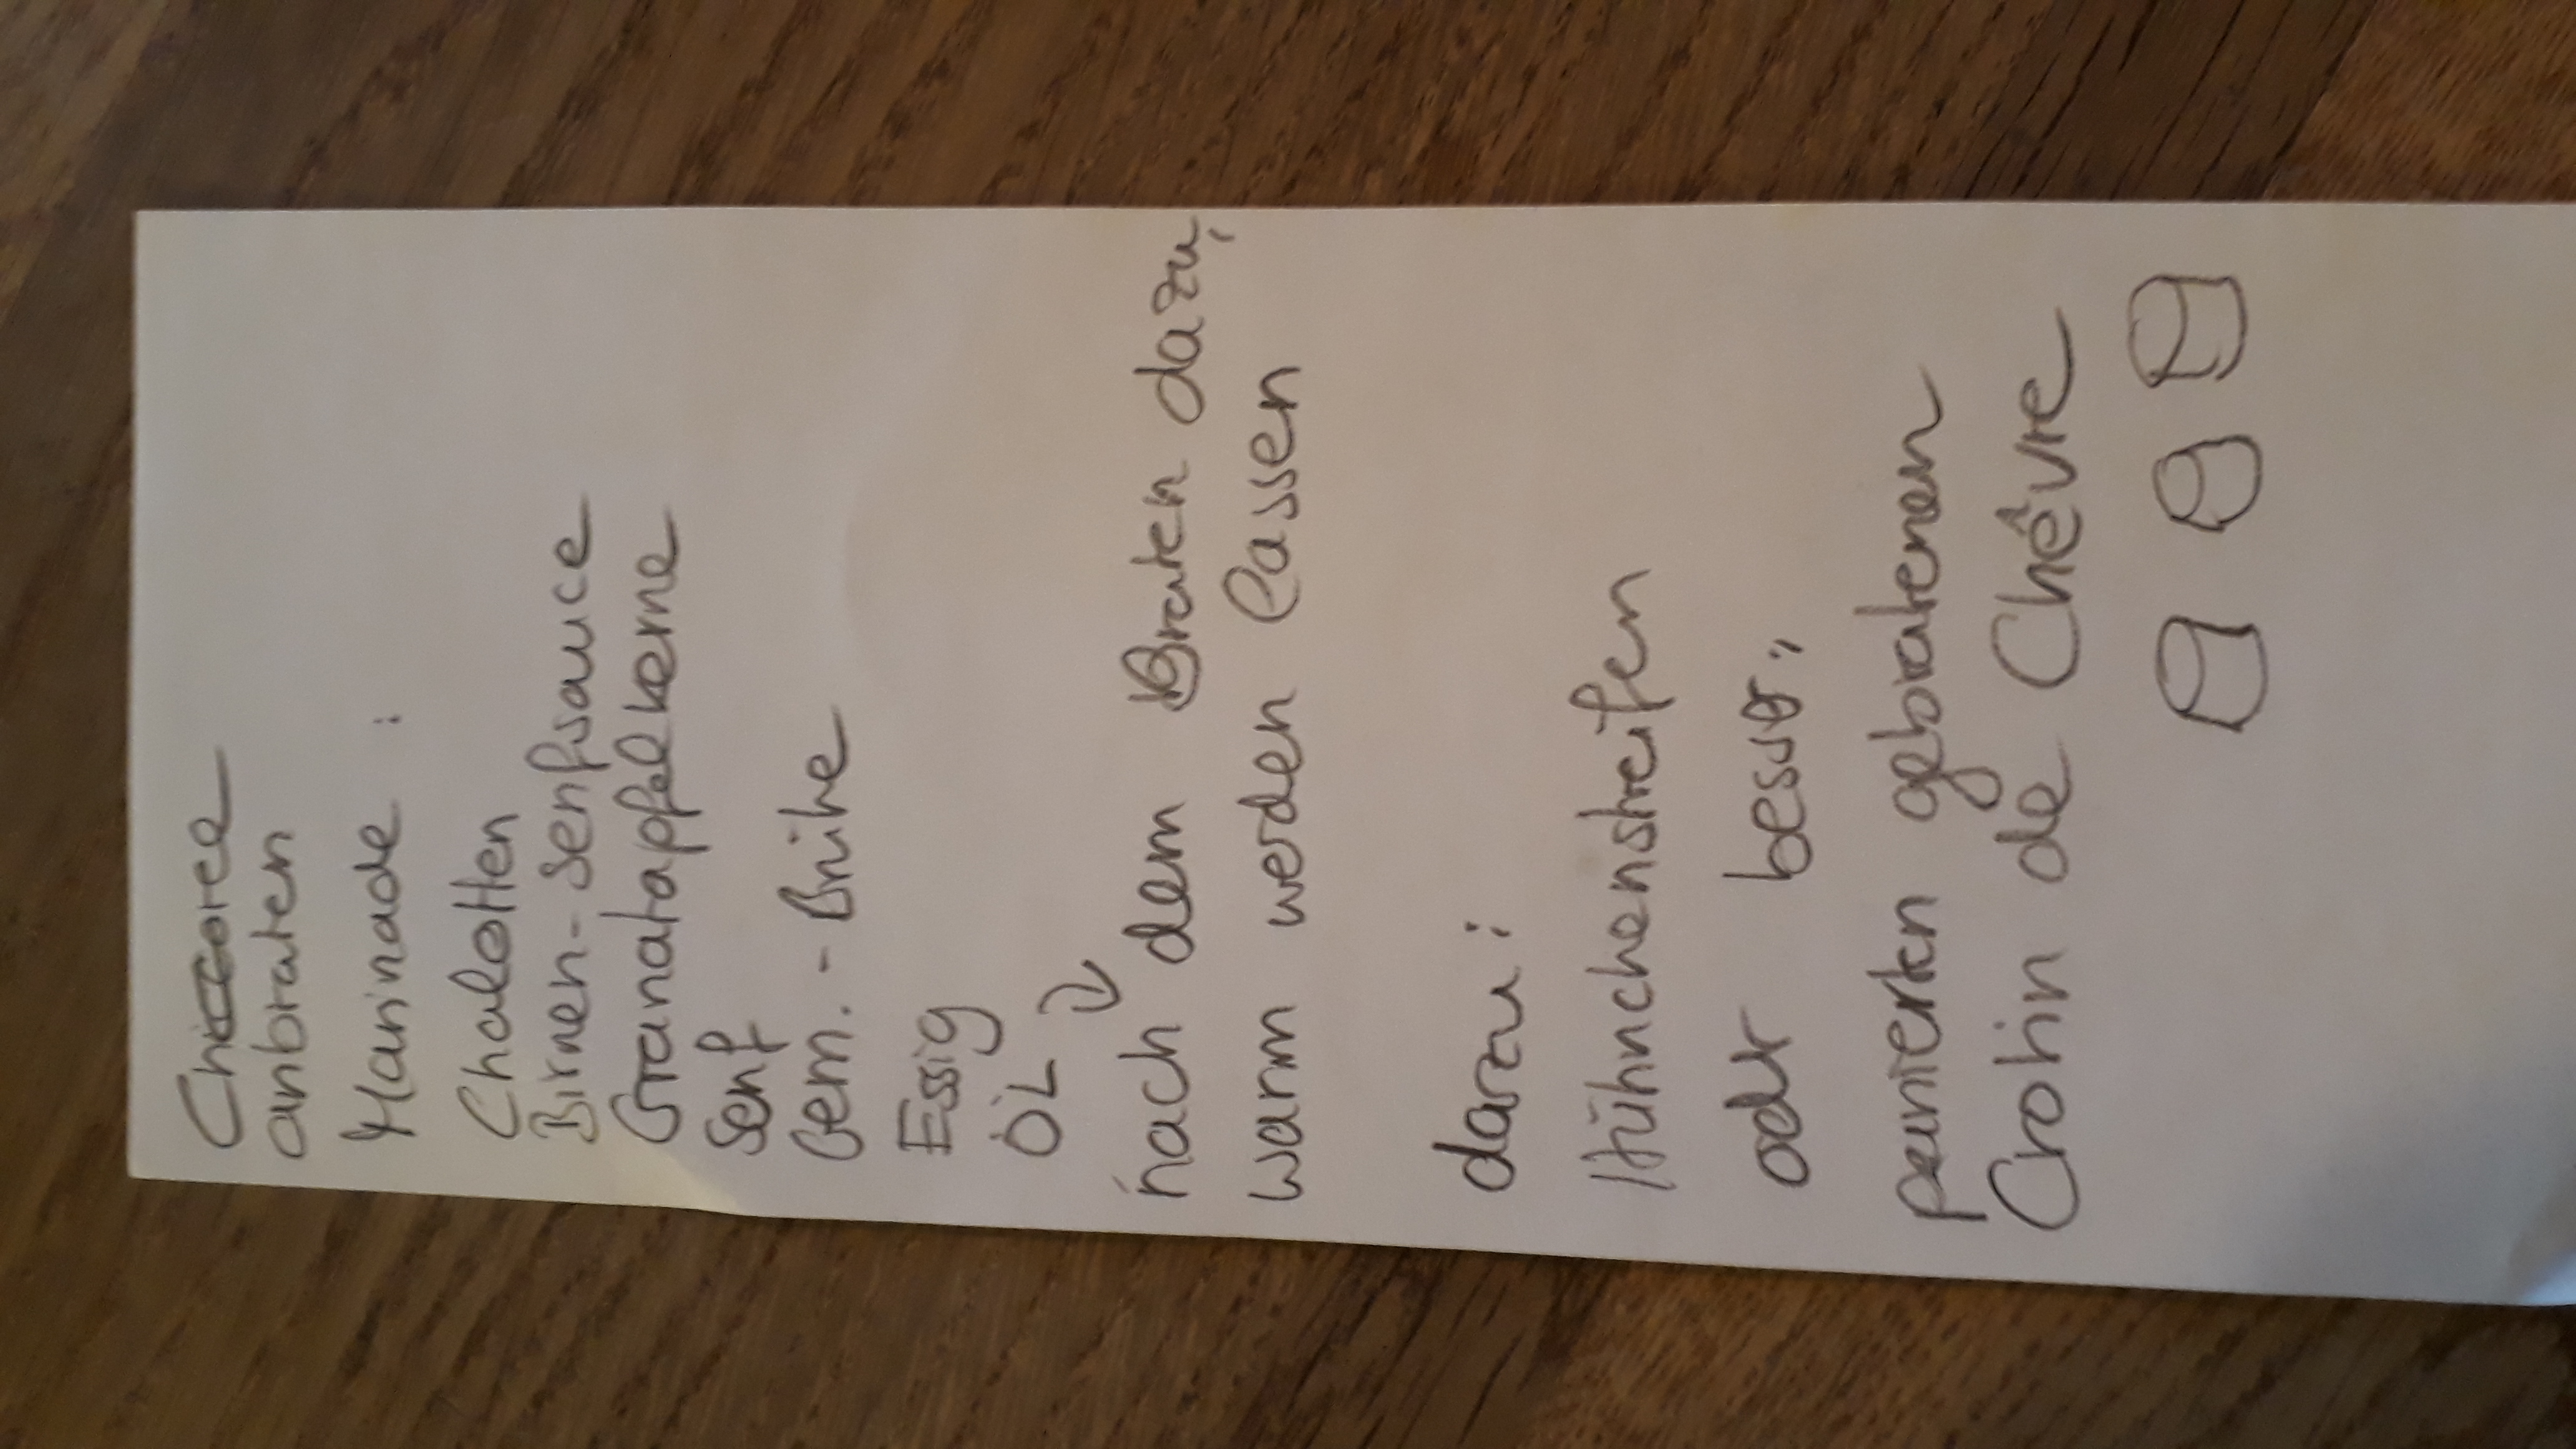 Chiccoree
anbraten
Marinade :
Chalotten
Birnen-Senfsauce
Granatapfelkerne
Senf
Gem.-Brühe
Essig
ÖL
nach dem Braten dazu,
warm werden lassen
dazu:
Hühnchenstreifen
oder besser:
panierten gebratenen
Crotin de Chêvre